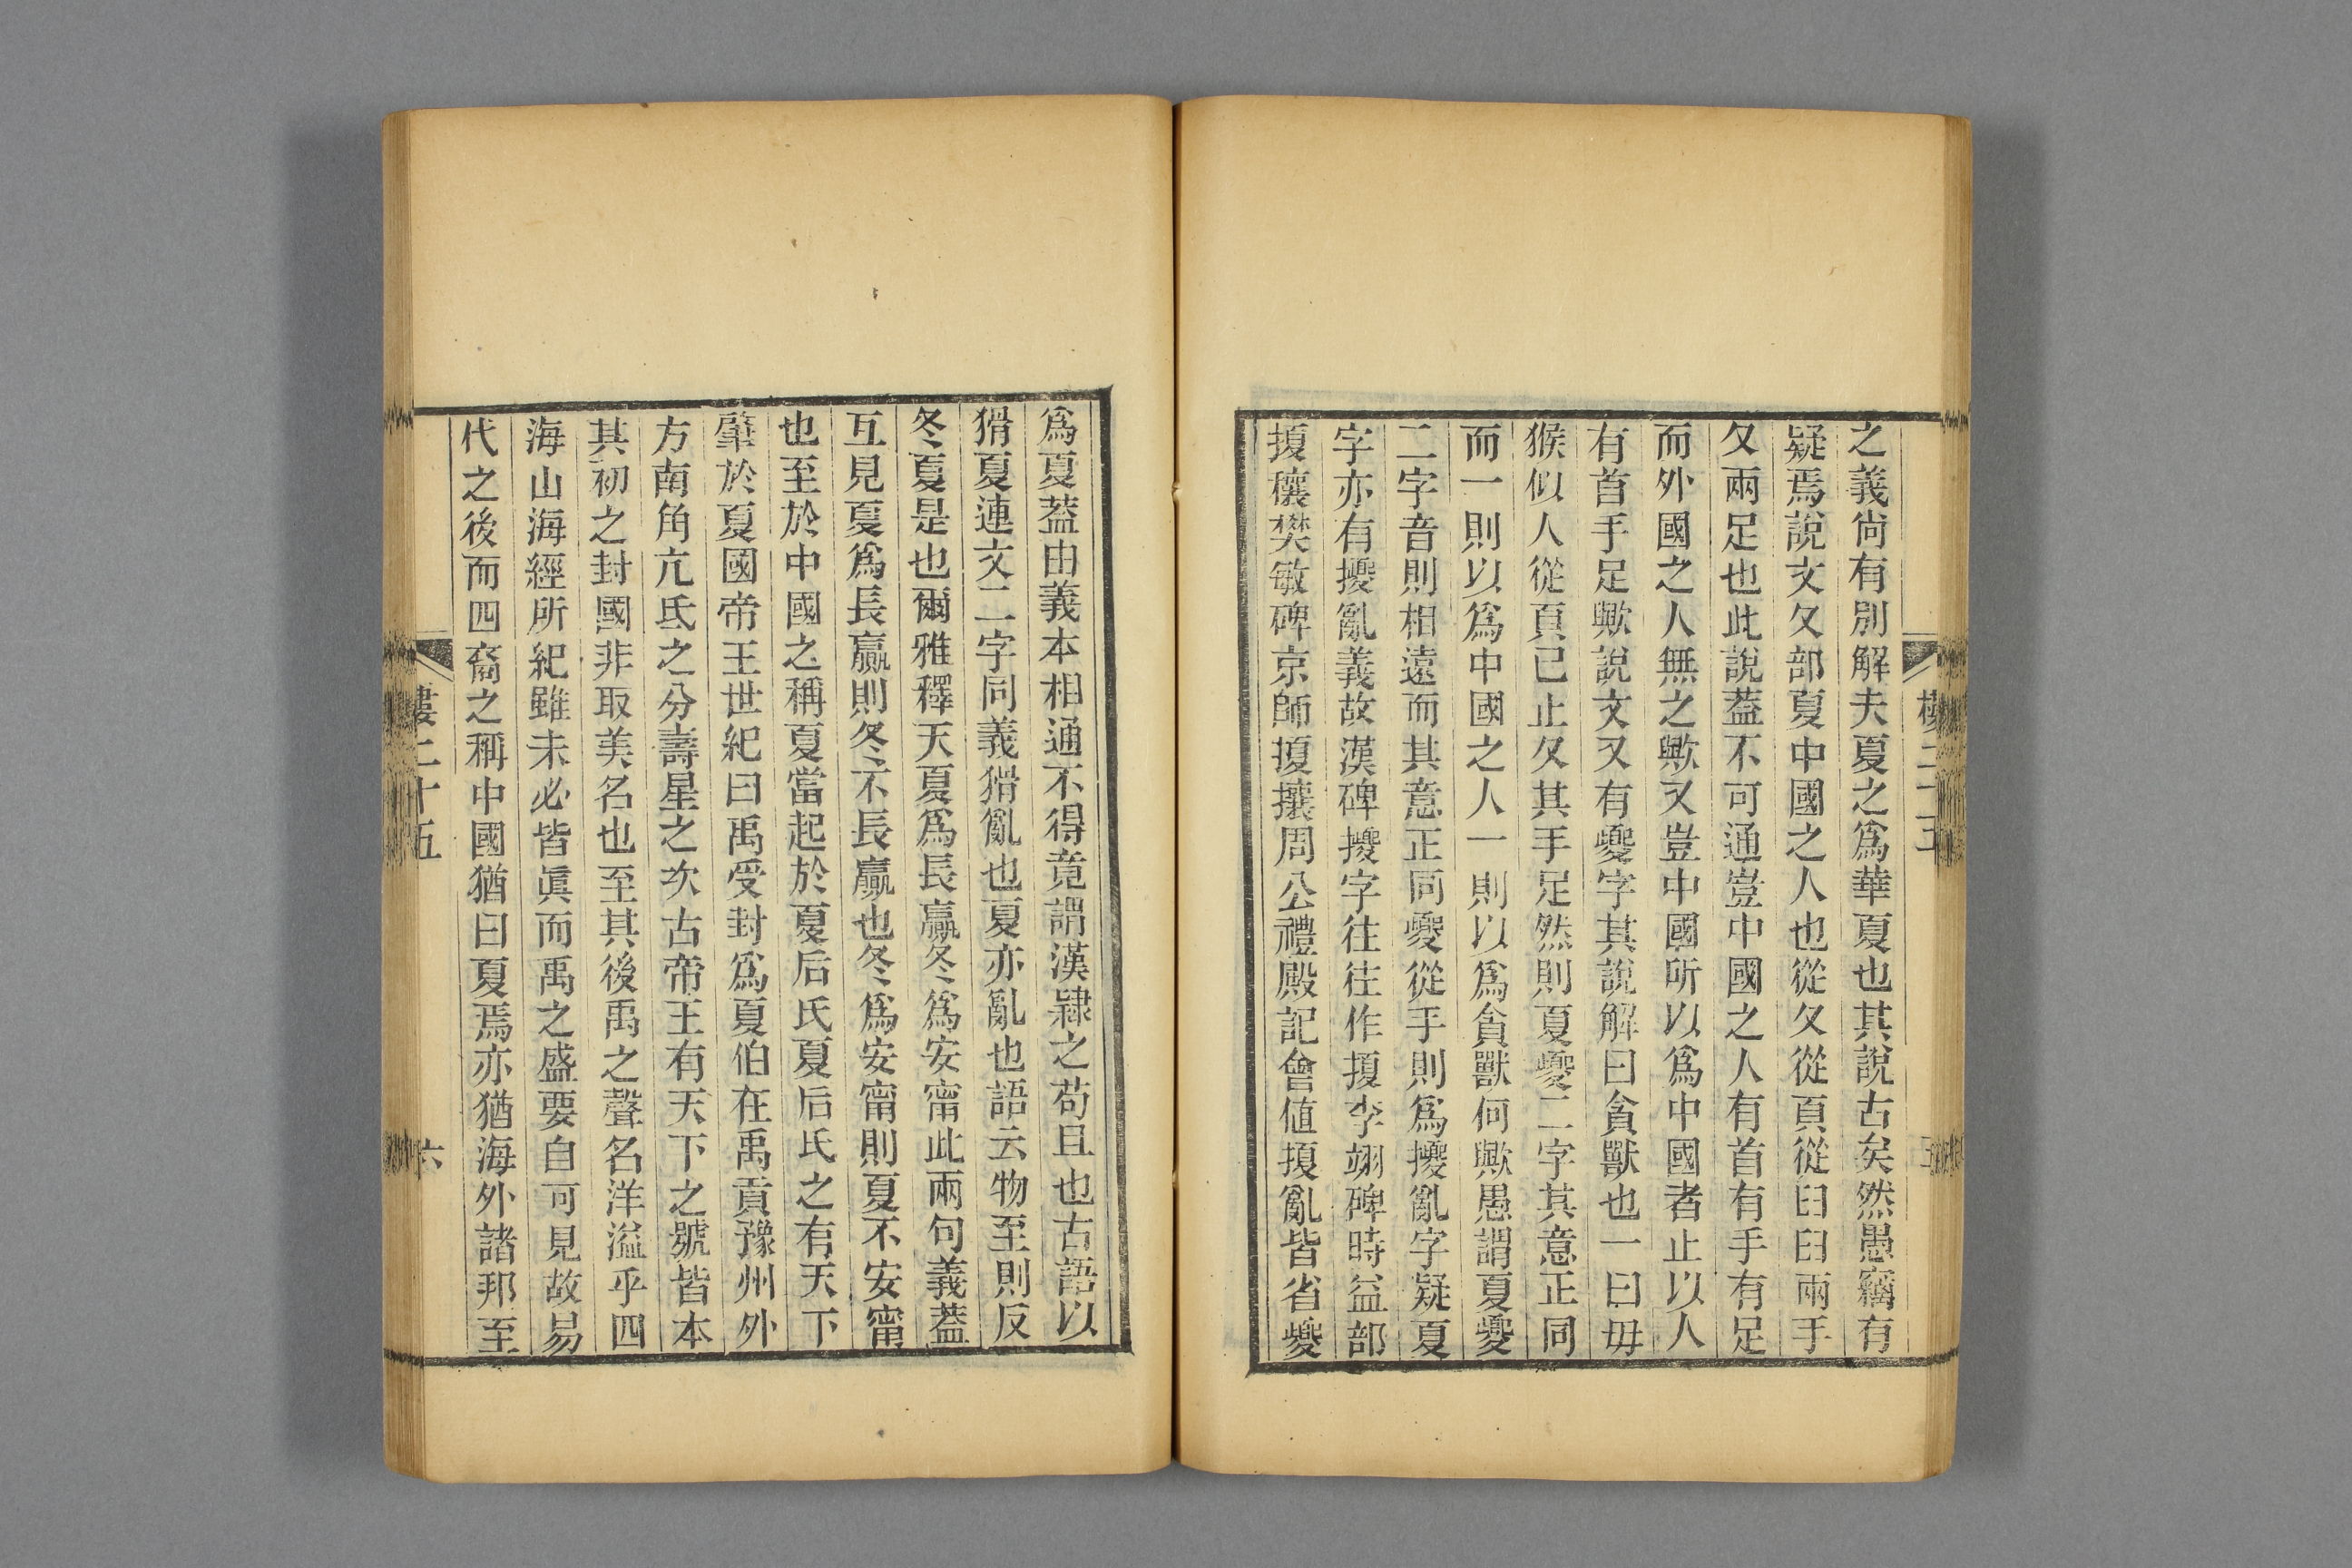 之義尙有別解夫夏之爲華夏也其說古矣然愚竊有
疑焉說文夊部夏中國之人也從夊從頁從𦥑𦥑兩手
夊兩足也此說蓋不可通豈中國之人有首有手有足
而外國之人無之歟又豈中國所以爲中國者止以人
有首手足歟說文又有夒字其說解曰貪獸也一曰母
猴似人從頁已止夊其手足然則夏夒二字其意正同
而一則以爲中國之人一則以爲貪獸何歟愚謂夏夒
二字音則相遠而其意正同夒從手則爲擾亂字疑夏
字亦有擾亂義故漢碑擾字往往作㨖李翊碑時益部
㨖穰樊敏碑京師㨖攘周公禮殿記會値㨖亂皆省夒
爲夏蓋由義本相通不得竟謂漢隸之苟且也古語以
猾夏連文二字同義猾亂也夏亦亂也語云物至則反
冬夏是也爾雅釋天夏爲長嬴冬爲安甯此兩句義蓋
互見夏爲長嬴則冬不長嬴也冬爲安甯則夏不安甯
也至於中國之稱夏當起於夏后氏夏后氏之有天下
肇於夏國帝王世紀曰禹受封爲夏伯在禹貢豫州外
方南角亢氐之分壽星之次古帝王有天下之號皆本
其初之封國非取美名也至其後禹之聲名洋溢乎四
海山海經所紀雖未必皆眞而禹之盛要自可見故易
代之後而四裔之稱中國猶曰夏焉亦猶海外諸邦至
樓二十五
六